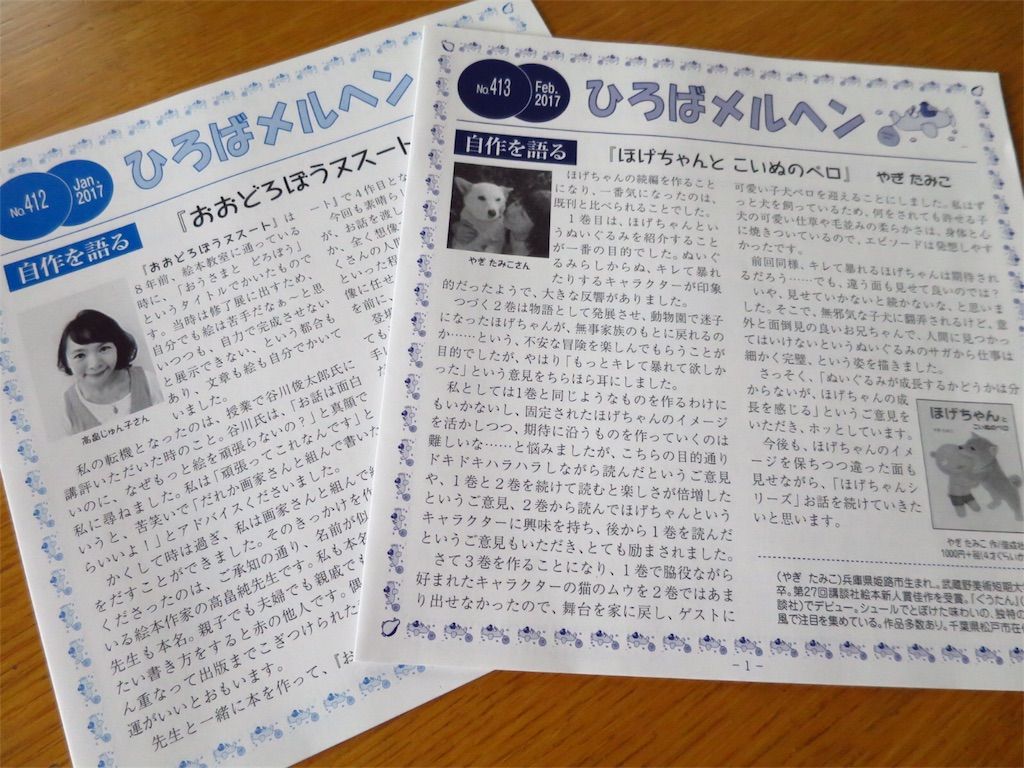 No.412
Jan.
2017
ひろばメルヘン
自作を語る
『おおどろぼうヌスート
高畠じゅん子さん
『おおどろぼうヌスート』は
8年前、絵本教室に通っている
時に、「おうさまと どろぼう」
というタイトルでかいたもので
す。当時は修了展に出すため、
自分でも絵は苦手だなぁ～と思
いつつも、自力で完成させない
と展示できない、という都合も
あり、文章も絵も自分でかいて
いました。
私の転機となったのは、授業で谷川俊太郎氏に
講評いただいた時のこと。谷川氏は、「お話は面白
いのに、なぜもっと絵を頑張らないの？」と真顔で
私に尋ねました。私は「頑張ってこれなんです」と
いうと、苦笑いで「だれか画家さんと組んで書いた
らいいよ！」とアドバイスくださいました。
かくして時は過ぎ、私は画家さんと組んで
をだすことができました。そのきっかけを作
くださったのは、ご承知の通り、名前が似
いる絵本作家の高畠純先生です。私も本名
先生も本名。親子でも夫婦でも親戚でも
たい書き方をすると赤の他人です。偶
ん重なって出版までこぎつけられた
運がいいとおもいます。
先生と一緒に本を作って、『お
ート』で4作目とな
今回も素晴らし
お話を渡し
か、全く想像
くさんの人間
といった程
像に任せ
を前に、
No.413
Feb.
2017
ひろばメルヘン
自作を語る
『ほげちゃんと こいぬのペロ』 やぎ たみこ
やぎ たみこさん
ほげちゃんの続編を作ること
になり、一番気になったのは、
既刊と比べられることでした。
1巻目は、ほげちゃんとい
うぬいぐるみを紹介すること
が一番の目的でした。ぬいぐ
るみらしからぬ、キレて暴れ
たりするキャラクターが印象
的だったようで、大きな反響がありました。
つづく2巻は物語として発展させ、動物園で迷子
になったほげちゃんが、無事家族のもとに戻れるの
か……という、不安な冒険を楽しんでもらうことが
目的でしたが、やはり「もっとキレて暴れて欲しか
った」という意見をちらほら耳にしました。
私としては1巻と同じようなものを作るわけに
もいかないし、固定されたほげちゃんのイメージ
を活かしつつ、期待に沿うものを作っていくのは
難しいな……と悩みましたが、こちらの目的通り
ドキドキハラハラしながら読んだというご意見
や、1巻と2巻を続けて読むと楽しさが倍増した
というご意見、2巻から読んでほげちゃんという
キャラクターに興味を持ち、後から1巻を読んだ
というご意見もいただき、とても励まされました。
さて3巻を作ることになり、1巻で脇役ながら
好まれたキャラクターの猫のムウを2巻ではあま
り出せなかったので、舞台を家に戻し、ゲストに
可愛い子犬ペロを迎えることにしました。私はず
っと犬を飼っているため、何をされても許せる子
犬の可愛い仕草や毛並みの柔らかさは、身体と心
に焼きついているので、エピソードは発想しやす
かったです。
前回同様、キレて暴れるほげちゃんは期待され
るだろう……でも、違う面も見せて良いのでは？
いや、見せていかないと続かないな、と思いま
した。そこで、無邪気な子犬に翻弄されるけど、意
外と面倒見の良いお兄ちゃんで、人間に見つかっ
てはいけないというぬいぐるみのサガから仕事は
細かく完璧、という姿を描きました。
さっそく、「ぬいぐるみが成長するかどうかは分
からないが、ほげちゃんの成
長を感じる」というご意見を
いただき、ホッとしています。
今後も、ほげちゃんのイメ
ージを保ちつつ違った面も
見せながら、「ほげちゃんシ
リーズ」お話を続けていきた
いと思います。
ほげちゃんと
こいぬのペロ
やぎ たみこ 作/偕成社
1000円＋税(4才ぐらいか
(やぎ たみこ)兵庫県姫路市生まれ。武蔵野美術短期大
卒。第27回講談社絵本新人賞佳作を受賞、「くうたん」(
談社)でデビュー。シュールでとぼけた味わいの、独特の
風で注目を集めている。作品多数あり。千葉県松戸市在
- 1 -